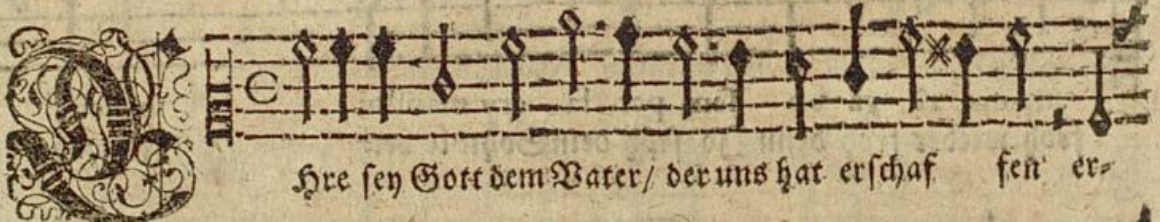 EHre sey Gott dem Vater/ der uns hat erschaf fen er⸗